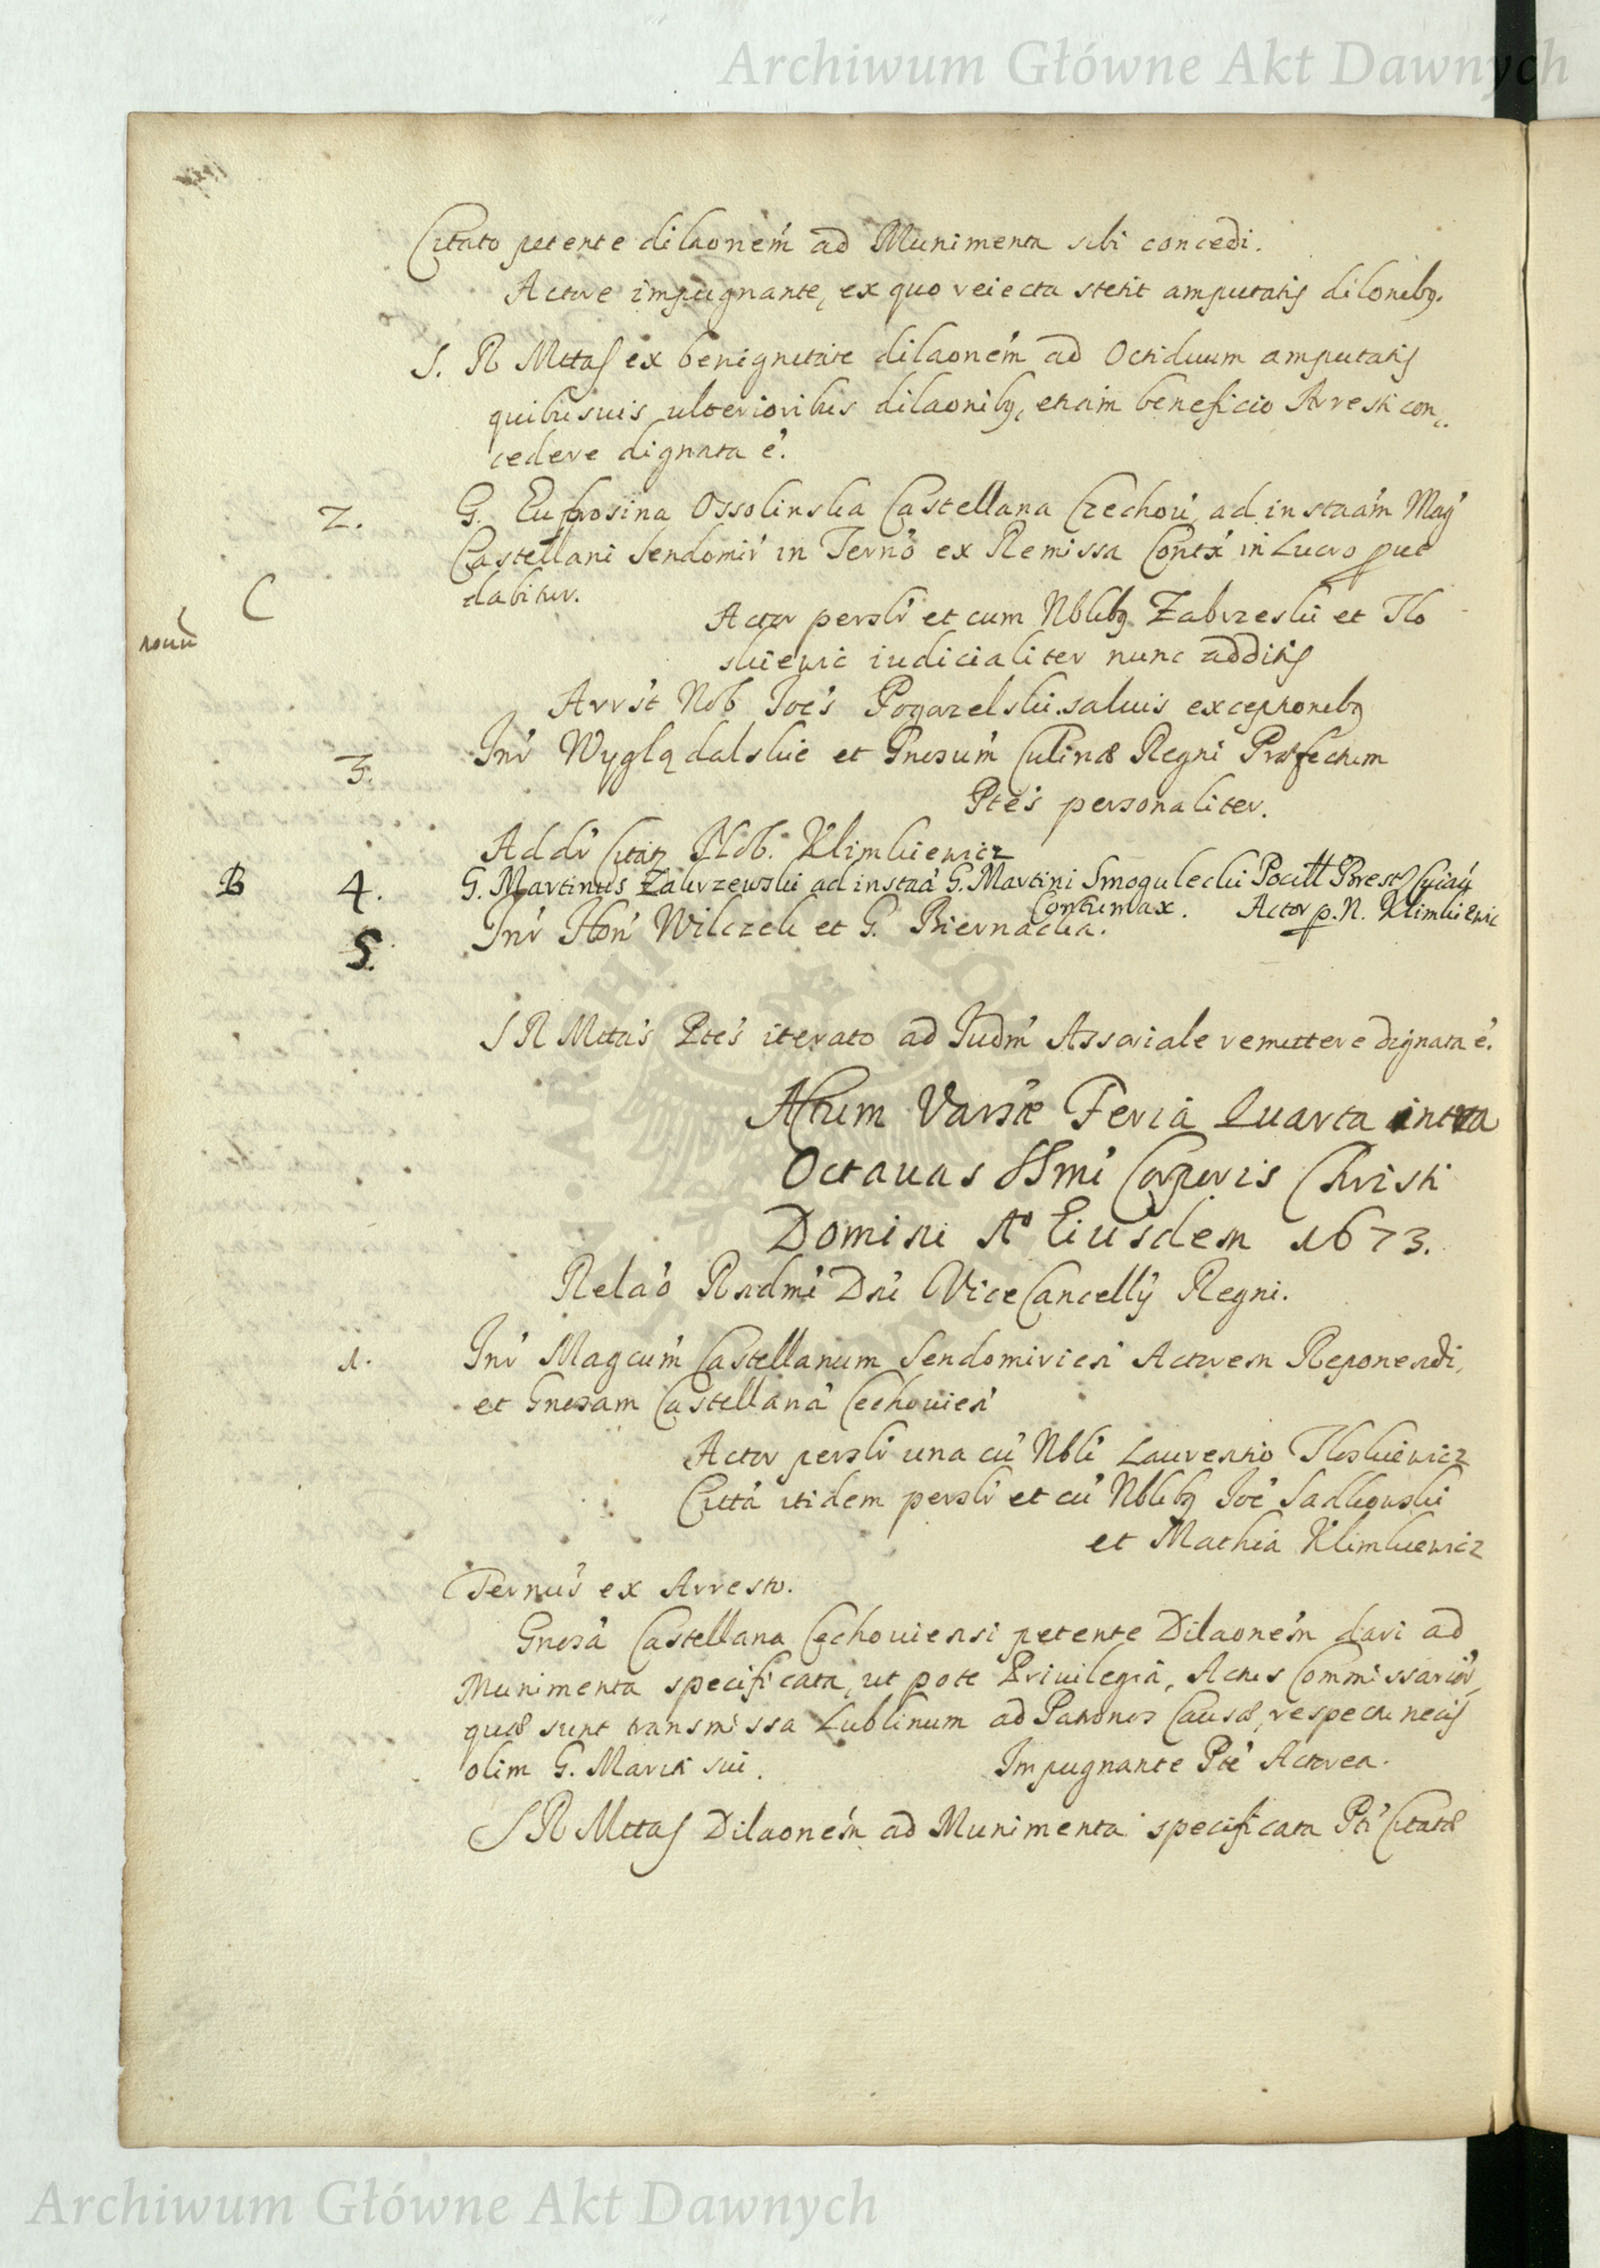 Archiwum Główne Akt Dawnych
Citato petente dilaoném ad Munimenta sibi concedi.
Actore impugnante, ex quo reiecta stetit amputatis dilonibq.
S. R Mttas ex benignitate dilaoném ad Octiduum amputatis
quibusuis ulterioribus dilaonibq, etiam beneficio Arresti con„
cedere dignata é.
2. G. Eufrosina Ossolinska Castellana Czechou ad instaám Mag
Castellani Sendomir in Terno ex Remissa Contx in Lucro put
C
dabitur.
nouu
Actor perslr et cum Nblibq Zabrzeski et Ilo
skiewic iudicialiter nunc additis
Arrst Nob Joés Pogorzelski saluis exceptionibq
3. Inr Wyglądalskie et Gnosum Culinæ Regni Præfectum
Ptes personaliter.
Addr Citatz Nob. Klimkiewicz
B 4. G. Martinus Zakrzewski ad instaá G. Martini Smogulecki Pocill Brest Cuiau
Contumax. Actor p. N. Klimkiewic
5. Inr Hon Wilczek et G. Biernacka.
S R Mttas Ptes iterato ad Judm Assoriale remittere dignata é.
Actum Varsæ Feria Quarta intra
Octauas SSmi Corporis Christi
Domini Ao Eiusdem 1673.
Relao Rndmi Dni ViceCancellij Regni.
1. Inr Magcum Castellanum Sendomirien Actorem Reponendi,
et Gnosam Castellana Cechouien
Actor perslr una cu Nbli Laurentio Iloskiewicz
Citta itidem perslr et cu Nblibq Joe Sadkowski
et Mathia Klimkiewicz
Ternus ex Arresto.
Gnosa Castellana Cechouiensi petente Dilaoném dari ad
Munimenta specificata, ut pote Priuilegia, Actus Commissarior,
quæ sunt transmissa Lublinum ad Patronos Causæ, respectu necis
olim G. Mariti sui. Impugnante Pte Actorea.
S R Mttas Dilaoném ad Munimenta specificata Pti Citatæ
Archiwum Główne Akt Dawnych